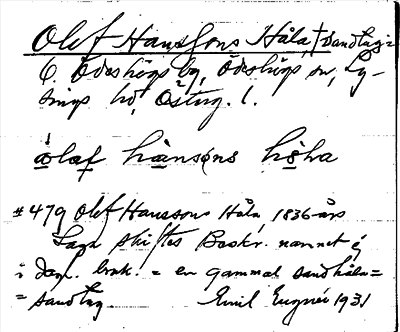 Olof Hanssons Håla, † Sandtag =
6. Ödeshögs by, Ödeshögs sn, Ly-
sings hd, Östug. l.
ålaf hansens håha
# 479 Olof Hanssons Håla, 1836 års
Laga skiftes Beskr. namnet ej
i dagl. bruk. = en gammal sandhåla =
= sandtag. Emil Eugner 1931